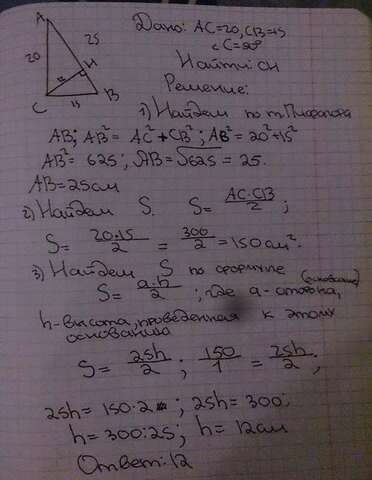 A
Дано: AC=20, CB=15
20
25
∠C=90°
H
Найти: CH
C
15
B
Решение:
1) Найдем по т. Пифагора
AB; AB²= AC²+CB²; AB²=20²+15²
AB²= 625; AB=√625 = 25.
AB=25см
2) Найдем S. S= AC·CB/2;
S= 20·15/2 = 300/2 = 150 см².
3) Найдем S по формуле
S= a·h/2; где a-сторона, (основание)
h-высота, проведенная к этому
основанию
S= 25h/2; 150/1 = 25h/2;
25h= 150·2; 25h= 300;
h= 300:25; h= 12см
Ответ: 12